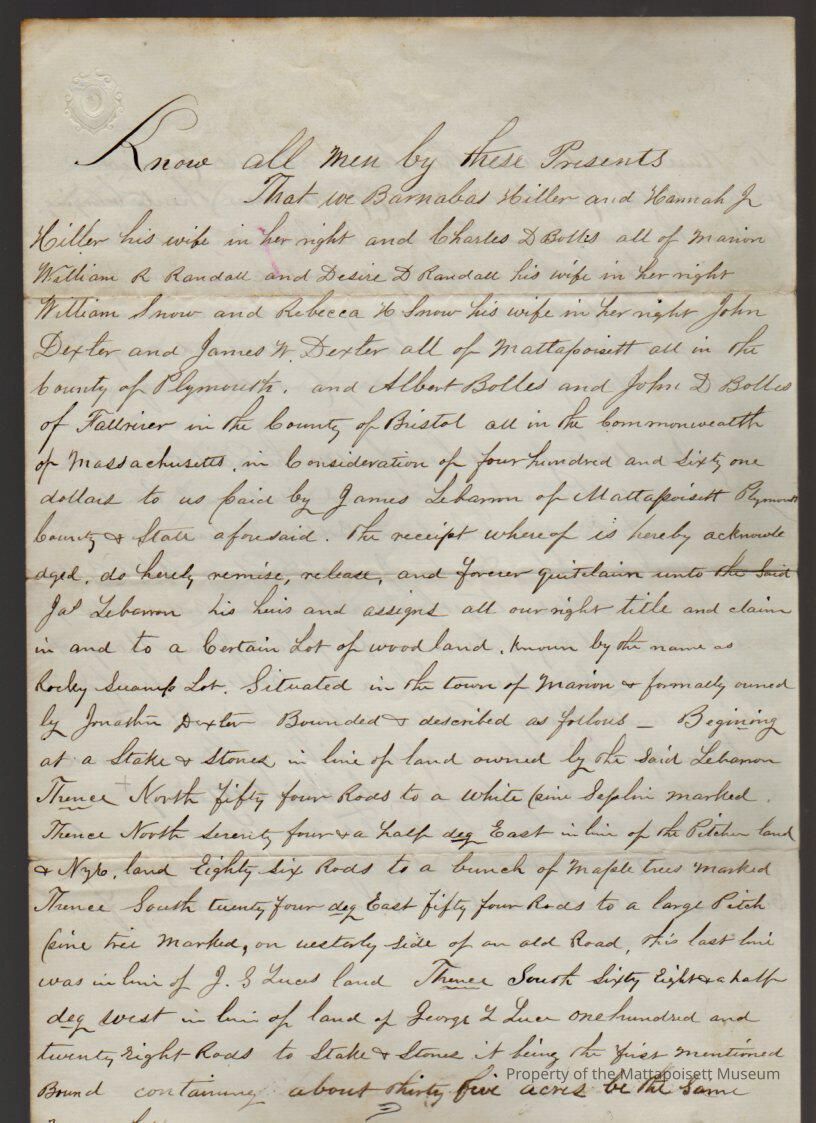 Know all men by these Presents
That we Barnabas Hiller and Hannah J
Hiller his wife in her right and Charles D Bolles all of Marion
William R Randall and Desire D Randall his wife in her right
William Snow and Rebecca H Snow his wife in her right John
Dexter and James W. Dexter all of Mattapoisett all in the
County of Plymouth. and Albert Bolles and John D Bolles
of Fallriver in the County of Bristol all in the Commonwealth
of Massachusetts, in Consideration of four hundred and sixty one
dollars to us paid by James Lebarron of Mattapoisett Plymouth
County & State aforesaid. the receipt whereof is hereby acknowle
dged, do herely remise, release, and forever quitclaim unto the Said
Jas Lebarron his heirs and assigns all our right title and claim
in and to a Certain Lot of woodland, known by the name as
Rocky Swamp Lot. Situated in the town of Marion & formally owned
by Jonathan Dexter Bounded & described as follows _ Begining
at a Stake & Stones in line of land owned by the Said Lebarron
Thence North fifty four Rods to a White pine Seplin marked.
Thence North seventy four & a half deg East in line of the Pitcher land
& Nye. land Eighty six Rods to a bunch of Maple trees marked
Thence South twenty four deg East fifty four Rods to a large Pitch
pine tree marked, on westerly side of an old Road, this last line
was in line of J. S Luces land Thence South Sixty Eight & a half
deg west in line of land of George L Luce one hundred and
twenty eight Rods to Stake & Stones it being the first mentioned
Property of the Mattapoisett Museum
Bound containing about thirty five acres be the same